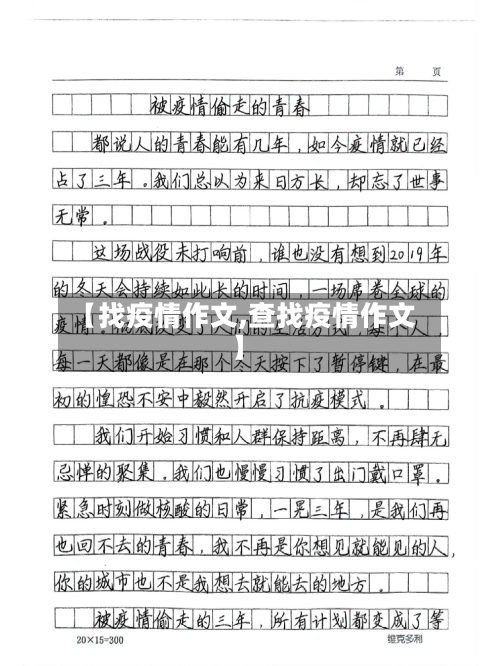 第 页
被疫情偷走的青春
都说人的青春能有几年，如今疫情就已经
占了三年。我们总以为来日方长，却忘了世事
无常。
这场战役未打响前，谁也没有想到2019年
的冬天会持续如此长的时间，一场席卷全球的
【找疫情作文,查找疫情作文
】
疫情，彻底改变了人们的生活方式，每个人
每一天都像是在那个冬天按下了暂停键，在最
初的惶恐不安中毅然开启了抗疫模式。
我们开始习惯和人群保持距离，不再肆无
忌惮的聚集。我们也慢慢习惯了出门戴口罩。
紧急时刻做核酸的日常，一晃三年，是我们再
也回不去的青春，我不再是你想见就能见的人，
你的城市也不是我想去就能去的地方。
被疫情偷走的三年，所有计划都变成了等
20×15=300
维克多利